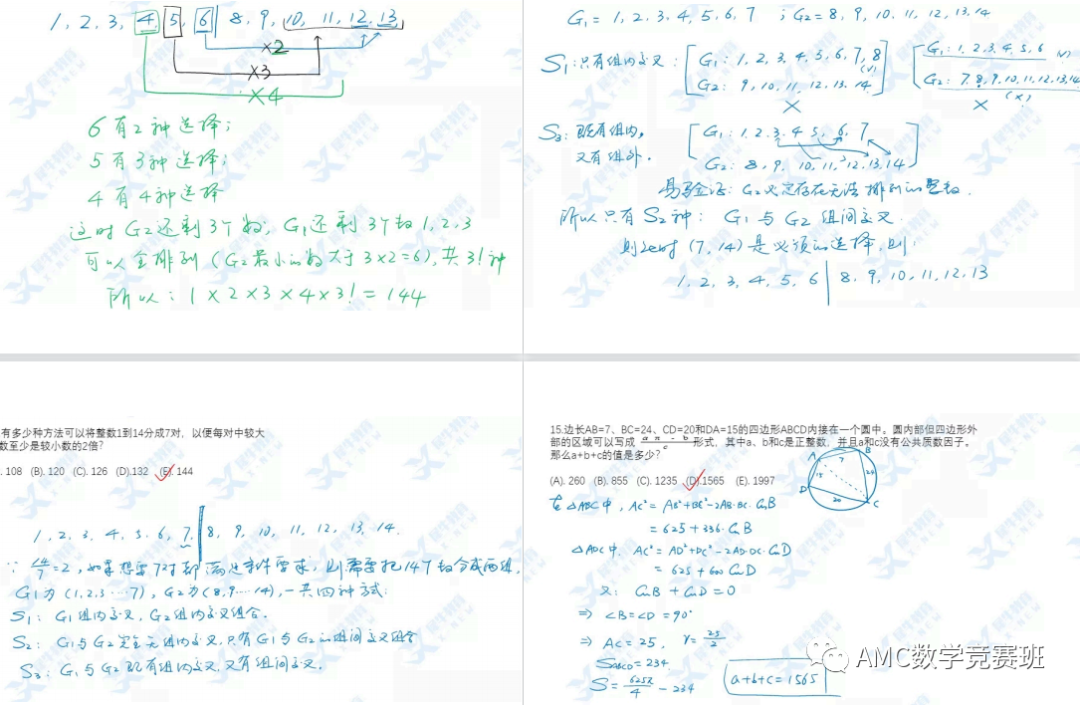 1, 2, 3, 4, 5, 6 | 8, 9, 10, 11, 12, 13
×2
×3
×4
6有2种选择;
5有3种选择;
4有4种选择
这时G2还剩3个数, G1还剩3个数1, 2, 3
可以全排列 (G2最小的数大于3×2=6), 共3!种
所以: 1×2×3×4×3! = 144
G1 = 1, 2, 3, 4, 5, 6, 7 ; G2 = 8, 9, 10, 11, 12, 13, 14
S1: 只有组内交叉:
G1: 1, 2, 3, 4, 5, 6, 7, 8 (√)
G2: 9, 10, 11, 12, 13, 14
×
G1: 1, 2, 3, 4, 5, 6 (√)
G2: 7, 8, 9, 10, 11, 12, 13, 14
× (×)
S3: 既有组内,
又有组外.
G1: 1, 2, 3, 4, 5, 6, 7
G2: 8, 9, 10, 11, 12, 13, 14
易验证: G2必定存在无法排列的整数.
所以只有S2种: G1与G2组间交叉.
则此时 (7, 14) 是必须的选择, 则:
1, 2, 3, 4, 5, 6 | 8, 9, 10, 11, 12, 13
有多少种方法可以将整数1到14分成7对，以便每对中较大
数至少是较小数的2倍?
. 108 (B). 120 (C). 126 (D).132 (E). 144
1, 2, 3, 4, 5, 6, 7, | 8, 9, 10, 11, 12, 13, 14.
∵ 14/7 = 2, 如果想要7对都满足条件要求, 则需要把14个数分成两组,
G1为 (1, 2, 3 ⋯ 7), G2为 (8, 9 ⋯ 14), 一共四种方式:
S1: G1组内交叉, G2组内交叉组合.
S2: G1与G2完全无组内交叉, 只有G1与G2的组间交叉组合
S3: G1与G2既有组内交叉, 又有组间交叉.
15.边长AB=7、BC=24、CD=20和DA=15的四边形ABCD内接在一个圆中。圆内部但四边形外
部的区域可以写成 aπ-b/c 形式，其中a、b和c是正整数，并且a和c没有公共质数因子。
那么a+b+c的值是多少?
(A). 260 (B). 855 (C). 1235 (D).1565 (E). 1997
A B C D 7 24 20 15
在△ABC中, AC² = AB²+BC²-2AB·BC·CosB
= 625 + 336·CosB
△ADC中, AC² = AD²+DC²-2AD·DC·CosD
= 625 + 600 CosD
又: CosB + CosD = 0
⇒ ∠B=∠D=90°
⇒ AC = 25, r = 25/2
SABCD = 234
S = 625π/4 - 234
a+b+c = 1565
AMC数学竞赛班